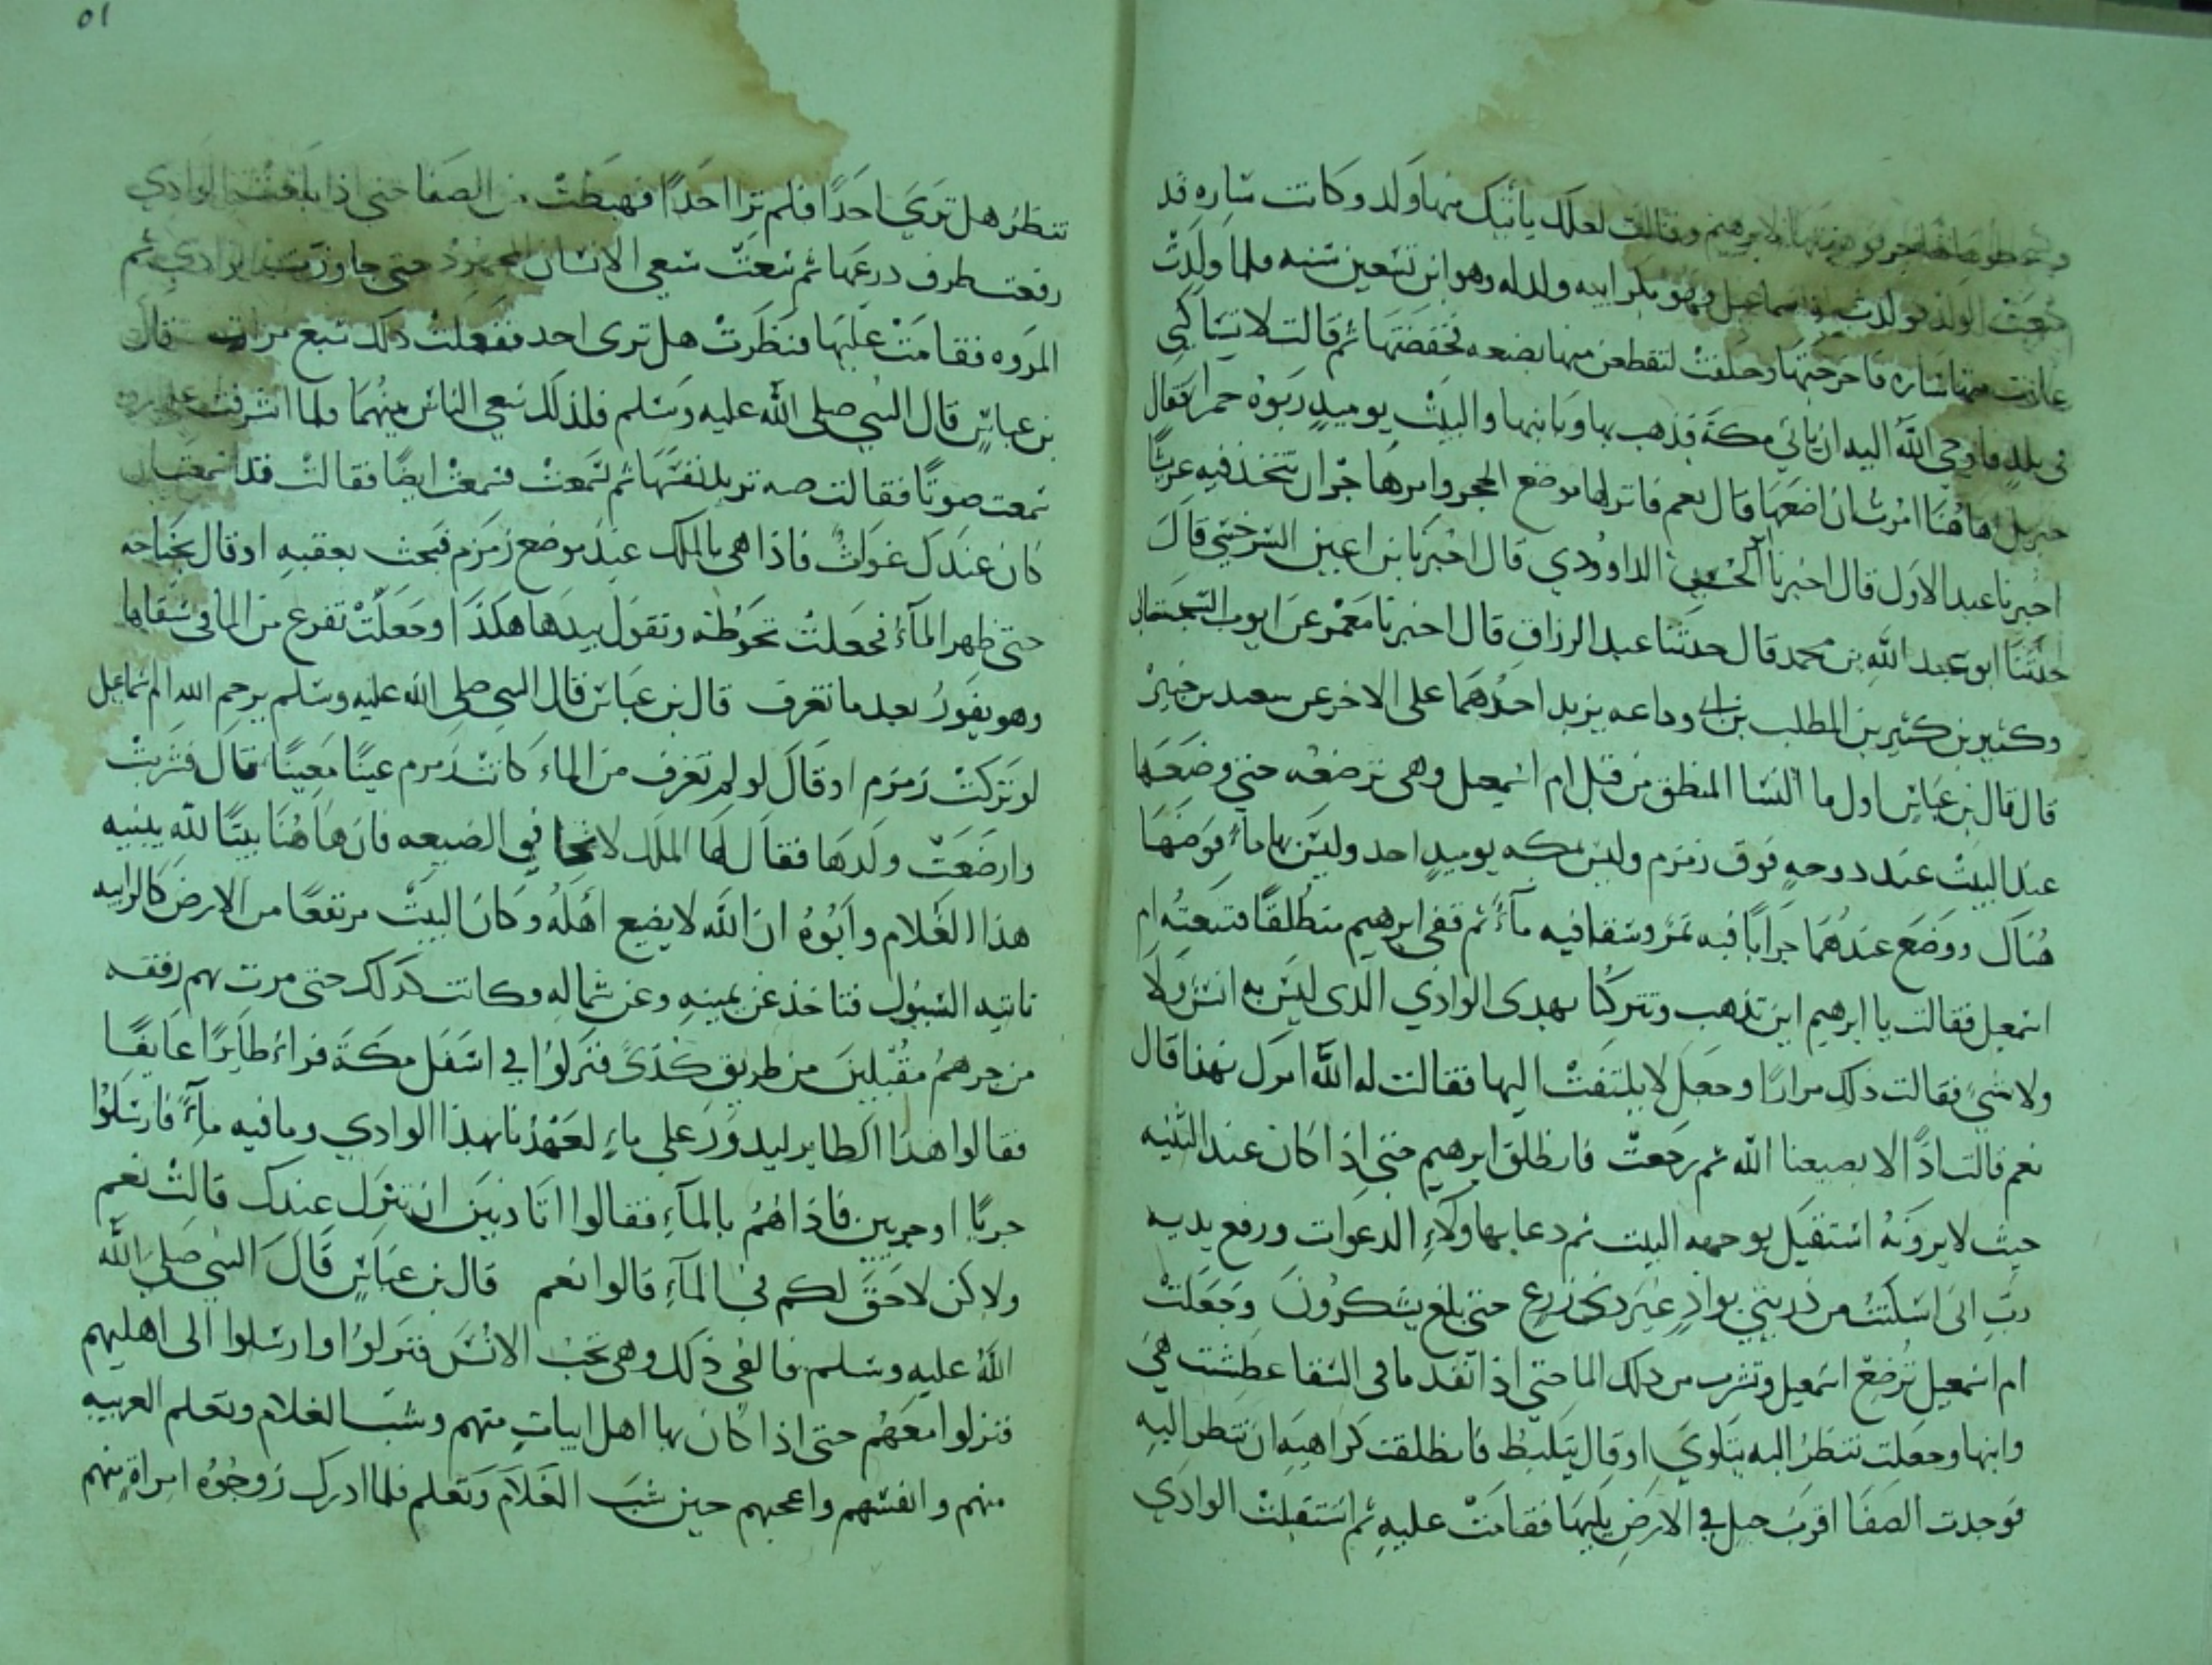 هاجر فوهبتها لابرهيم وقالت لعلك ياتيك منها ولد وكانت ساره قد
منعت الولد فولدت اسماعيل وهو بكر ابيه ولد له وهو ابن تسعين سنه فلما ولدت
غارت منها ساره فاخرجتها وحلفت لتقطعن منها بضعه فخفضتها ثم قالت لا تساكني
في بلد فاوحي الله اليه ان ياتي مكة فذهب بها وبابنها والبيت يوميد ربوة حمرا فقال
جبريل اهاهنا امرت ان اضعها قال نعم فانزلها موضع الحجر وامر هاجر ان تتخذ فيه عريشا
اخبرنا عبد الاول قال اخبرنا الداوودي قال اخبرنا بن اعين السرخسي قال
حدثنا ابو عبد الله بن محمد قال حدثنا عبد الرزاق قال اخبرنا معمر عن ايوب السختياني
وكثير بن كثير بن المطلب بن ابي وداعه يزيد احدهما على الاخر عن سعيد بن جبير
قال قال بن عباس اول ما النسا المنطق من قبل ام اسمعيل وهى ترضعه حتى وضعها
عند البيت عند دوحه فوق زمزم وليس بمكه يوميد احد وليس بها ماء فوضعها
هناك ووضع عندهما جرابا فيه تمر وسقا فيه ماء ثم قفى ابرهيم منطلقا فتبعته ام
اسمعيل فقالت يا ابرهيم اين تذهب وتتركنا بهدى الوادي الذى ليس به انس ولا
ولا شي فقالت ذلك مرارا وجعل لا يلتفت اليها فقالت له الله امرك بهذا قال
نعم قالت اذا لا يضيعنا الله ثم رجعت فانطلق ابرهيم حتى اذا كان عند الثنيه
حيث لا يرونه استقبل بوجهه البيت ثم دعا بهاولاء الدعوات ورفع يديه
رب انى اسكنت من ذريتي بواد غير دى زرع حتى بلغ يشكرون وجعلت
ام اسمعيل ترضع اسمعيل وتشرب من ذلك الما حتى اذا نفد ما فى السقا عطشت هي
وابنها وجعلت تنظر اليه يتلوي او قال يتلبط فانطلقت كراهيه ان تنظر اليه
فوجدت الصفا اقرب جبل في الارض يليها فقامت عليه ثم استقبلت الوادي
تنظر هل تري احدا فلم ترا احدا فهبطت من الصفا حتى اذا بلغت الوادي
رفعت طرف درعها ثم سعت سعي الانسان المجهود حتى جاوزت الوادي ثم
المروه فقامت عليها فنظرت هل ترى احد ففعلت ذلك سبع مرات قال
بن عباس قال النبي صلى الله عليه وسلم فلذلك سعي الناس بينهما فلما اشرفت على
سمعت صوتا فقالت صه تريد نفسها ثم تسمعت فسمعت ايضا فقالت قد اسمعت ان
كان عندك غواث فاذا هي بالملك عند موضع زمزم فبحث بعقبه او قال بجناحه
حتى ظهر الماء فجعلت تحوطه وتقول بيدها هكذا وجعلت تفرع من الما في سقايها
وهو يفور بعد ما تغرف قال بن عباس قال النبي صلى الله عليه وسلم يرحم الله ام اسماعيل
لو تركت زمزم او قال لو لم تغرف من الماء كانت زمزم عينا معينا قال فشربت
وارضعت ولدها فقال لها الملك في الضيعه فان هاهنا بيتا لله يبنيه
هذا الغلام وابوه ان الله لا يضيع اهله وكان البيت مرتفعا من الارض كالرابيه
تاتيه السيول فتاخذ عن يمينه وعن شماله وكانت كذلك حتى مرت بهم رفقه
من جرهم مقبلين من طريق كدى فنزلوا في اسفل مكة فراء طايرا عايفا
فقالوا هذا الطاير ليدور على ماء لعهدنا بهذا الوادي وما فيه ماء فارسلوا
جريا او جريين فاذا هم بالماء فقالوا اتاذنين ان ننزل عندك قالت نعم
ولا كن لا حق لكم في الماء قالوا نعم قال بن عباس قال النبي صلى الله
الله عليه وسلم فالفى ذلك وهي تحب الانس فنزلوا وارسلوا الى اهليهم
فنزلوا معهم حتى اذا كان بها اهل ابيات منهم وشب الغلام وتعلم العربيه
منهم وانفسهم واعجبهم حين شب الغلام وتعلم فلما ادرك زوجوه امراة منهم